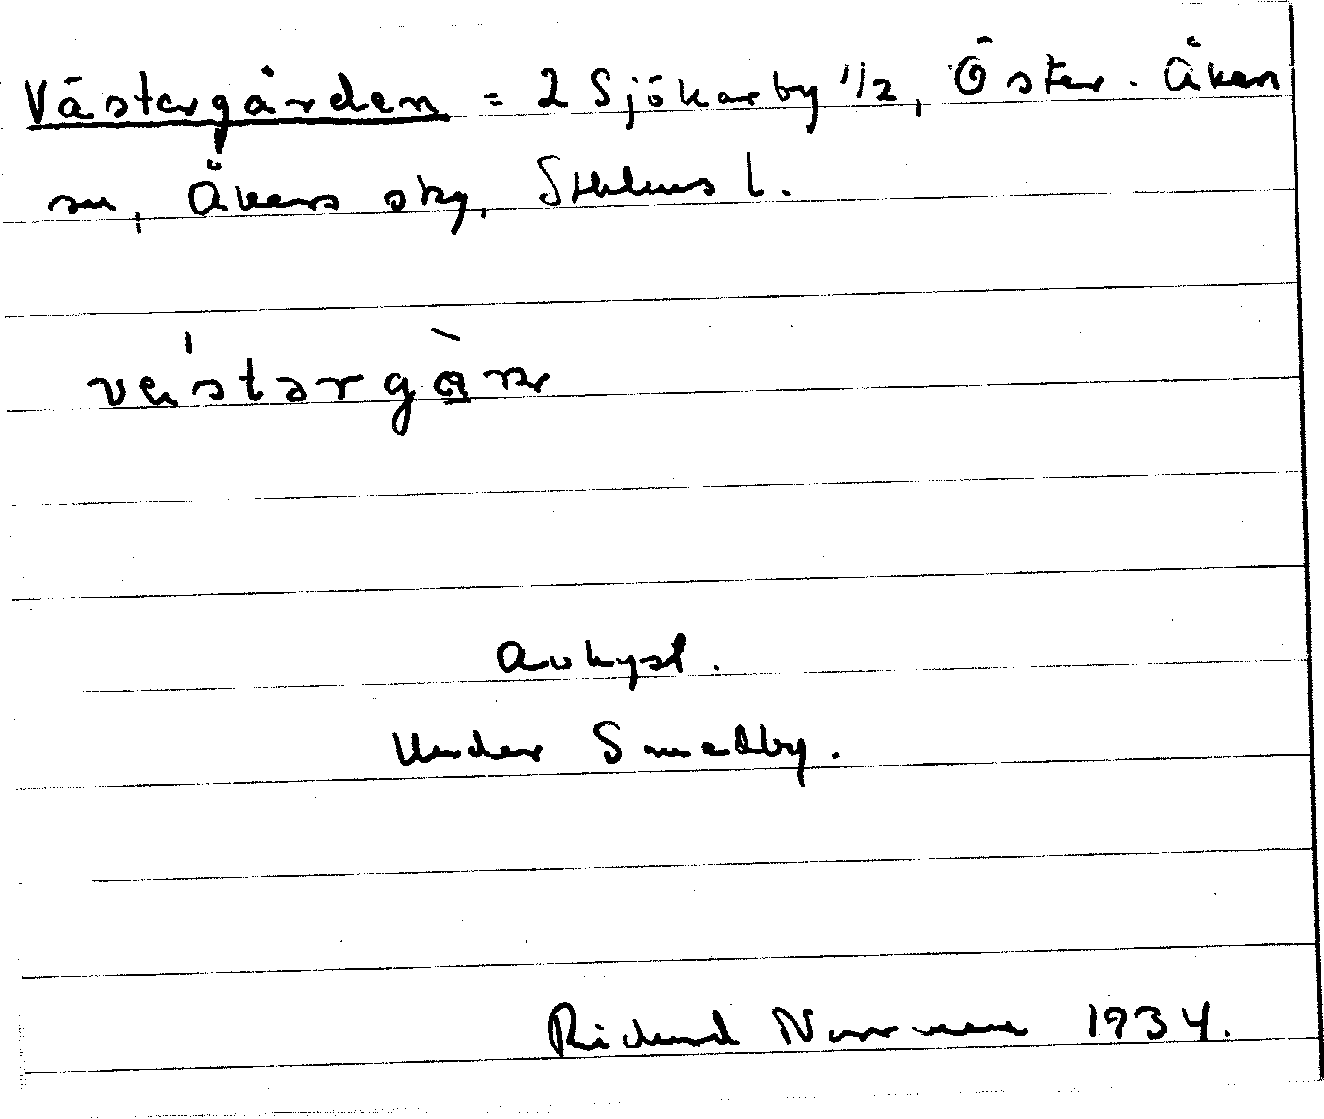 Västergården = 2 Sjökarby 1/2, Öster-Åker
sn, Åkers skg, Sthlms l.
västərgå̀ṇ
Avhyst.
Under Smedby.
Rickard Norrman 1934.